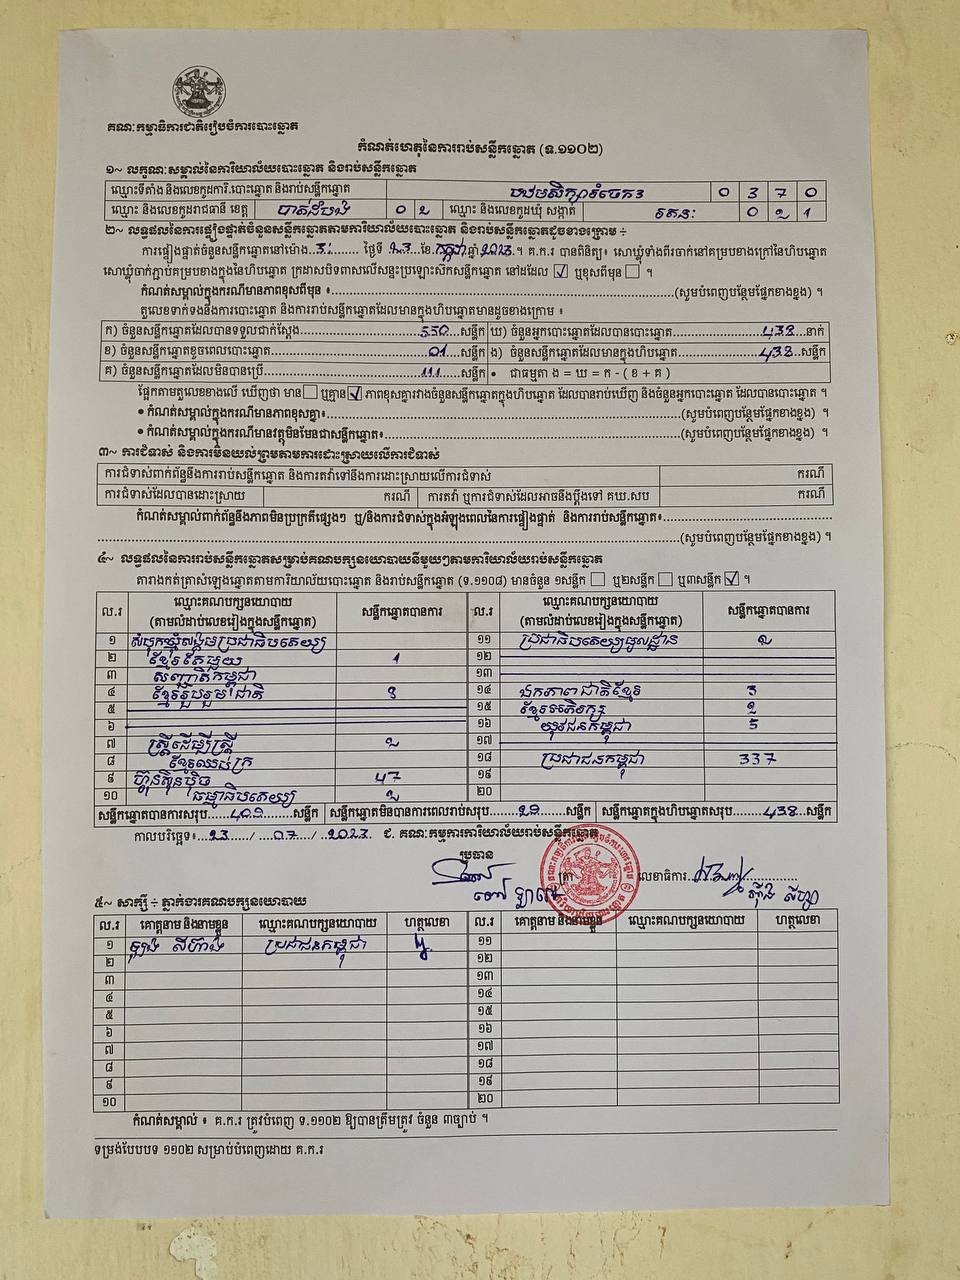 គណៈកម្មាធិការជាតិរៀបចំការបោះឆ្នោត
កំណត់ហេតុនៃការរាប់សន្លឹកឆ្នោត (ទ.១១០២)
១~ លក្ខណៈសម្គាល់នៃការិយាល័យបោះឆ្នោត និងរាប់សន្លឹកឆ្នោត
ឈ្មោះទីតាំង និងលេខកូដការិ.បោះឆ្នោត និងរាប់សន្លឹកឆ្នោត បឋមសិក្សាវាំចេក3 0 3 7 0
ឈ្មោះ និងលេខកូដរាជធានី ខេត្ត បាត់ដំបង 0 2 ឈ្មោះ និងលេខកូដឃុំ សង្កាត់ រតនៈ 0 2 1
២~ លទ្ធផលនៃការផ្ទៀងផ្ទាត់ចំនួនសន្លឹកឆ្នោតតាមការិយាល័យបោះឆ្នោត និងរាប់សន្លឹកឆ្នោតដូចខាងក្រោម ÷
ការផ្ទៀងផ្ទាត់ចំនួនសន្លឹកឆ្នោតនៅម៉ោង..3.:...... ថ្ងៃទី 23 ខែ កក្កដា ឆ្នាំ 2023 ។ គ.ក.រ បានពិនិត្យ៖ សោឃ្លុំទាំងពីរចាក់នៅគម្របខាងក្រៅនៃហិបឆ្នោត
សោឃ្លុំចាក់ភ្ជាប់គម្របខាងក្នុងនៃហិបឆ្នោត ក្រដាសបិទពាសលើសន្ទះប្រឡោះសិកសន្លឹកឆ្នោត នៅដដែល ☑ ឬខុសពីមុន ☐ ។
កំណត់សម្គាល់ក្នុងករណីមានភាពខុសពីមុន ៖......(សូមបំពេញបន្ថែមផ្នែកខាងខ្នង) ។
តួលេខទាក់ទងនឹងការបោះឆ្នោត និងការរាប់សន្លឹកឆ្នោតដែលមានក្នុងហិបឆ្នោតមានដូចខាងក្រោម ៖
ក) ចំនួនសន្លឹកឆ្នោតដែលបានទទួលជាក់ស្តែង......550...សន្លឹក ឃ) ចំនួនអ្នកបោះឆ្នោតដែលបានបោះឆ្នោត......438...នាក់
ខ) ចំនួនសន្លឹកឆ្នោតខូចពេលបោះឆ្នោត......01...សន្លឹក ង) ចំនួនសន្លឹកឆ្នោតដែលមានក្នុងហិបឆ្នោត......438...សន្លឹក
គ) ចំនួនសន្លឹកឆ្នោតដែលមិនបានប្រើ......111...សន្លឹក • ជាធម្មតា ង = ឃ = ក - ( ខ + គ )
ផ្អែកតាមតួលេខខាងលើ ឃើញថា មាន ☐ ឬគ្មាន ☑ ភាពខុសគ្នារវាងចំនួនសន្លឹកឆ្នោតក្នុងហិបឆ្នោត ដែលបានរាប់ឃើញ និងចំនួនអ្នកបោះឆ្នោត ដែលបានបោះឆ្នោត ។
• កំណត់សម្គាល់ក្នុងករណីមានភាពខុសគ្នា៖......(សូមបំពេញបន្ថែមផ្នែកខាងខ្នង) ។
• កំណត់សម្គាល់ក្នុងករណីមានវត្ថុមិនមែនជាសន្លឹកឆ្នោត៖......(សូមបំពេញបន្ថែមផ្នែកខាងខ្នង) ។
៣~ ការជំទាស់ និងការមិនយល់ព្រមតាមការដោះស្រាយលើការជំទាស់
ការជំទាស់ពាក់ព័ន្ធនឹងការរាប់សន្លឹកឆ្នោត និងការតវ៉ាទៅនឹងការដោះស្រាយលើការជំទាស់ ករណី
ការជំទាស់ដែលបានដោះស្រាយ ករណី ការតវ៉ា ឬការជំទាស់ដែលអាចនឹងប្តឹងទៅ គឃ.សប ករណី
កំណត់សម្គាល់ពាក់ព័ន្ធនឹងភាពមិនប្រក្រតីផ្សេងៗ ឬ/និងការជំទាស់ក្នុងអំឡុងពេលនៃការផ្ទៀងផ្ទាត់ និងការរាប់សន្លឹកឆ្នោត៖......
......(សូមបំពេញបន្ថែមផ្នែកខាងខ្នង) ។
៤~ លទ្ធផលនៃការរាប់សន្លឹកឆ្នោតសម្រាប់គណបក្សនយោបាយនីមួយៗតាមការិយាល័យរាប់សន្លឹកឆ្នោត
តារាងកត់ត្រាសំឡេងឆ្នោតតាមការិយាល័យបោះឆ្នោត និងរាប់សន្លឹកឆ្នោត (ទ.១១០៨) មានចំនួន ១សន្លឹក ☐ ឬ២សន្លឹក ☐ ឬ៣សន្លឹក ☑ ។
ល.រ ឈ្មោះគណបក្សនយោបាយ (តាមលំដាប់លេខរៀងក្នុងសន្លឹកឆ្នោត) សន្លឹកឆ្នោតបានការ ល.រ ឈ្មោះគណបក្សនយោបាយ (តាមលំដាប់លេខរៀងក្នុងសន្លឹកឆ្នោត) សន្លឹកឆ្នោតបានការ
១ សំបុកឃ្មុំសង្គមប្រជាធិបតេយ្យ ១១ ប្រជាធិបតេយ្យមូលដ្ឋាន 2
២ ខ្មែរតែមួយ 1 ១២
៣ សញ្ជាតិកម្ពុជា ១៣
៤ ខ្មែររួបរួមជាតិ 3 ១៤ ឯកភាពជាតិខ្មែរ 3
៥ ១៥ ខ្មែរអភិរក្ស
៦ ១៦ យុវជនកម្ពុជា 5
៧ ស្ត្រីដើម្បីស្ត្រី 2 ១៧
៨ ខ្មែរឈប់ក្រ ១៨ ប្រជាជនកម្ពុជា 337
៩ ហ្វ៊ុនស៊ិនប៉ិច 47 ១៩
១០ ធម្មាធិបតេយ្យ 2 ២០
សន្លឹកឆ្នោតបានការសរុប...409...សន្លឹក សន្លឹកឆ្នោតមិនបានការពេលរាប់សរុប...29...សន្លឹក សន្លឹកឆ្នោតក្នុងហិបឆ្នោតសរុប...438...សន្លឹក
កាលបរិច្ឆេទ៖...23.../...07.../...2023 ជ. គណៈកម្មការការិយាល័យរាប់សន្លឹកឆ្នោត
ប្រធាន
ត្រា លេខាធិការ
៥~ សាក្សី ÷ ភ្នាក់ងារគណបក្សនយោបាយ
ល.រ គោត្តនាម និងនាមខ្លួន ឈ្មោះគណបក្សនយោបាយ ហត្ថលេខា ល.រ គោត្តនាម និងនាមខ្លួន ឈ្មោះគណបក្សនយោបាយ ហត្ថលេខា
១ ឡុង ស៊ីហ៊ាង ប្រជាជនកម្ពុជា ១១
២ ១២
៣ ១៣
៤ ១៤
៥ ១៥
៦ ១៦
៧ ១៧
៨ ១៨
៩ ១៩
១០ ២០
កំណត់សម្គាល់ ៖ គ.ក.រ ត្រូវបំពេញ ទ.១១០២ ឱ្យបានត្រឹមត្រូវ ចំនួន ៣ច្បាប់ ។
ទម្រង់បែបបទ ១១០២ សម្រាប់បំពេញដោយ គ.ក.រ